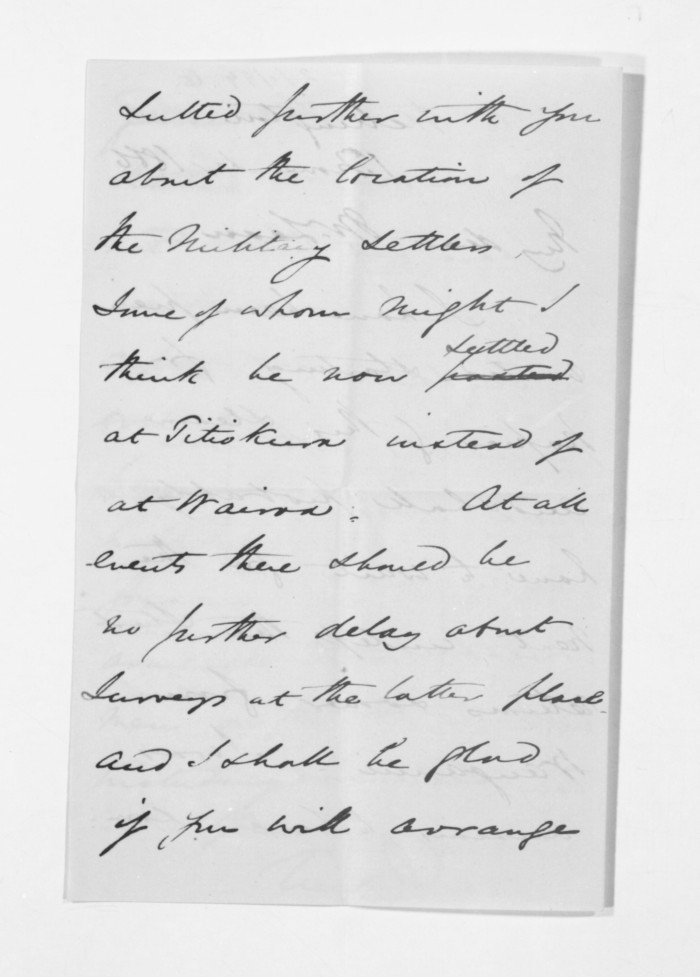 settled further with you
about the location of
the Military Settlers,
Some of whom might I
think be now posted settled
at Titiokura instead of
at Wairoa. At all
events there should be
no further delay about
Surveys at the latter place
and I shall be glad
if you will arrange